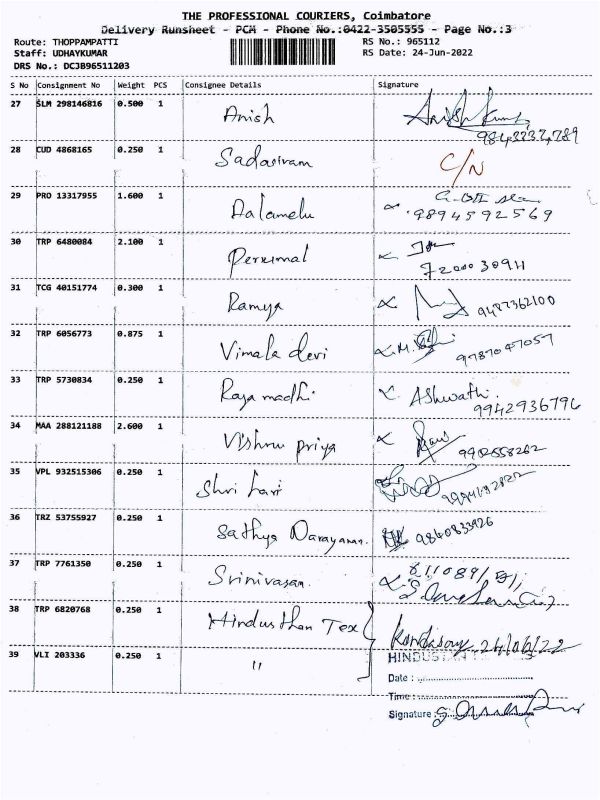 THE PROFESSIONAL COURIERS, Coimbatore
Delivery Runsheet - PCM - Phone No.:0422-3505555 - Page No.:3
Route: THOPPAMPATTI RS No.: 965112
Staff: UDHAYKUMAR RS Date: 24-Jun-2022
DRS No.: DCJB96511203
S No Consignment No Weight PCS Consignee Details Signature
27 SLM 298146816 0.500 1 Anish
9843237789
28 CUD 4868165 0.250 1 Sadasivam C/N
29 PRO 13317955 1.600 1 Aalamelu
9894592569
30 TRP 6480084 2.100 1 Perumal
7200030911
31 TCG 40151774 0.300 1 Ramya 9487362100
32 TRP 6056773 0.875 1 Vimala devi
9787047057
33 TRP 5730834 0.250 1 Raja madhi Ashwathi
9942936796
34 MAA 288121188 2.600 1 Vishnu priya
35 VPL 932515306 0.250 1 Shri hari
36 TRZ 53755927 0.250 1 Sathya Narayanan 9840833926
37 TRP 7761350 0.250 1 Srinivasan
38 TRP 6820768 0.250 1 Hindusthan Tex
24/06/22
39 VLI 203336 0.250 1 "
Date :
Time :
Signature :